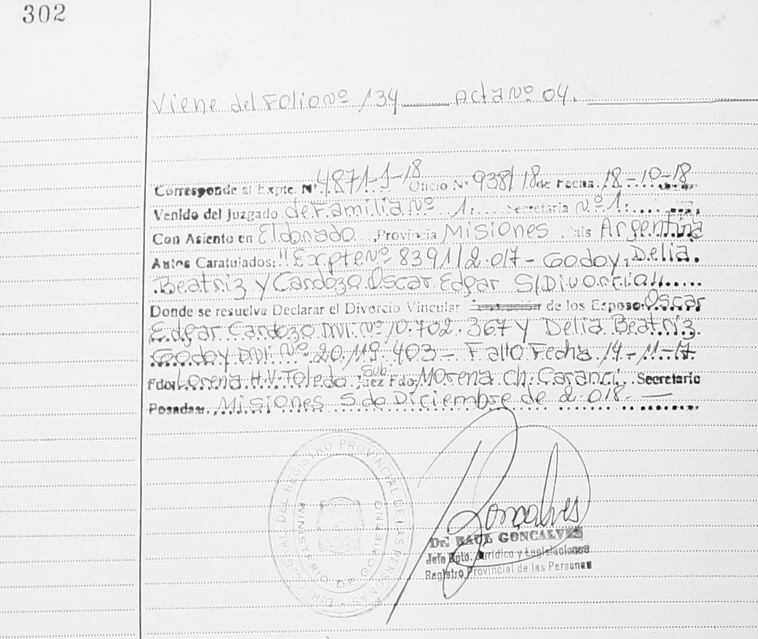 302
Viene del Folio Nº 134 ____ Acta Nº 04. ____
Corresponde al Expte. Nº 4871-J-18 Oficio Nº 938/18 de Fecha 18-10-18
Venido del Juzgado de Familia Nº 1. Secretaria Nº 1.
Con Asiento en Eldorado Provincia Misiones. ais Argentina
Autos Caratulados: "Expte Nº 8391/2.017 - Godoy, Delia.
Beatriz y Cardozo Oscar Edgar S/Divorcio"
Donde se resuelve Declarar el Divorcio Vincular de los Esposo: Oscar
Edgar Cardozo DNI. Nº 10.702.367 y Delia Beatriz
Godoy DNI. Nº 20.119.403 - Fallo Fecha 14-11-17
Fdo. Lorena H.V. Toledo Juez Fdo. Morena Ch. Caranci. Sub Secretario
Posadas. Misiones 5 de Diciembre de 2.018. —
Goncalves
Dr. RAUL GONCALVES
Jefe Dpto. Jurídico y Legislaciones
Registro Provincial de las Personas
DEL REGISTRO PROVINCIAL DE LAS PERSONAS
MINISTERIO DE GOBIERNO